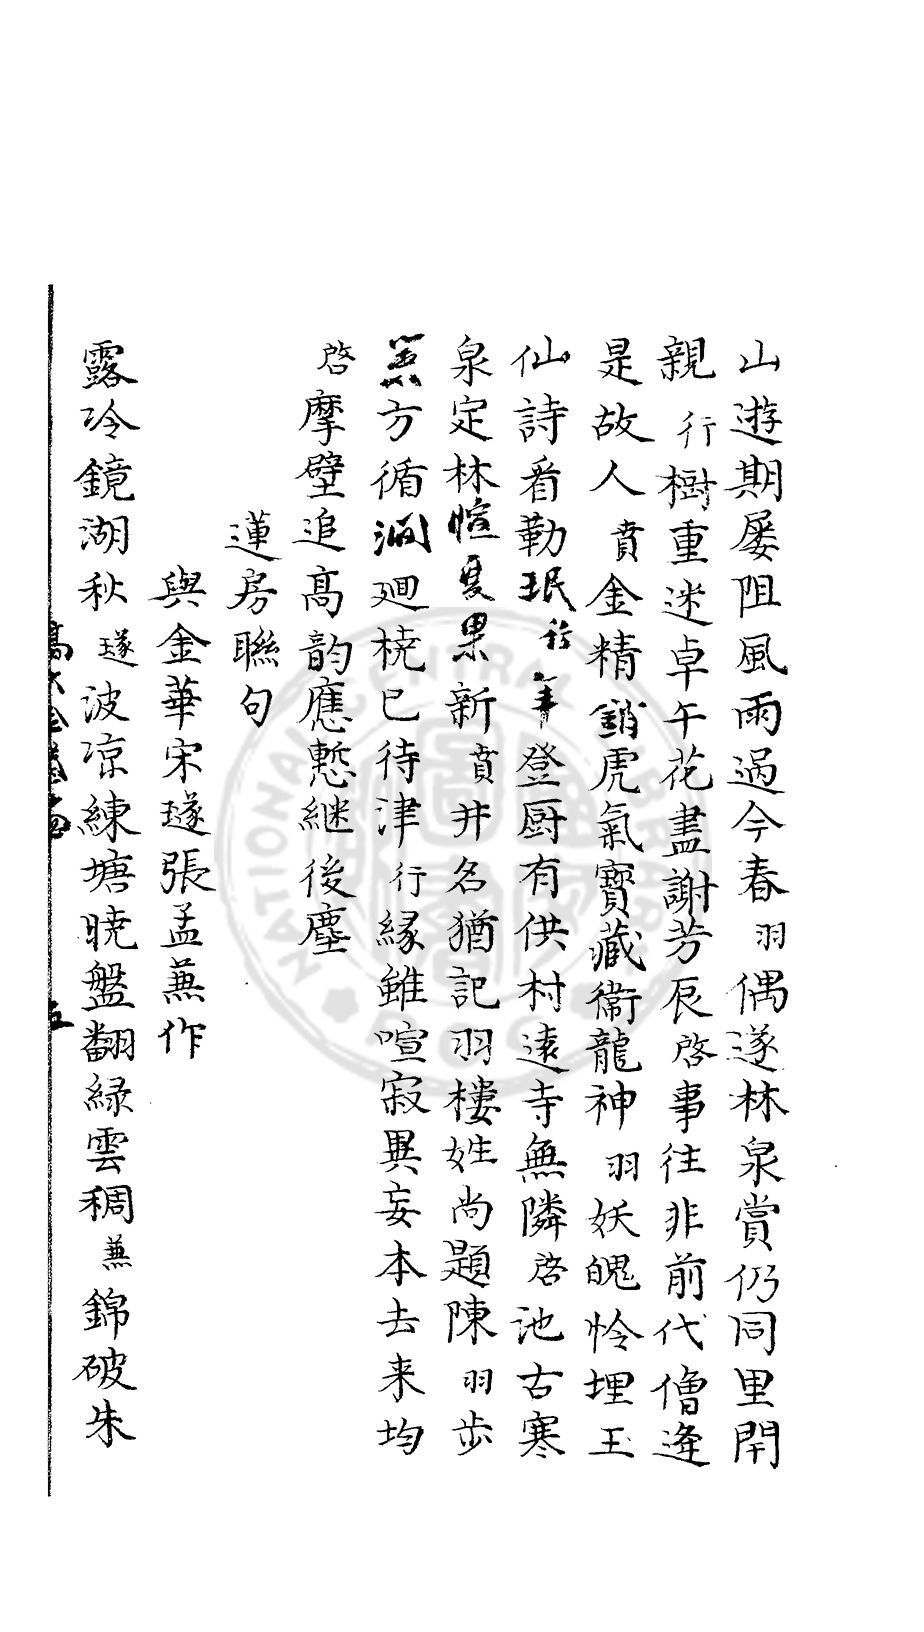 山遊期屢阻風雨過今春羽偶遂林泉賞仍同里閈
親行樹重迷卓午花盡謝芳辰啓事往非前代僧逢
是故人賁金精銷虎氣寶藏衞龍神羽妖魄怜埋玉
仙詩看勒珉行登厨有供村遠寺無隣啓池古寒
泉定林愃夏果新賁井名猶記羽樓姓尚題陳羽步
方循澗廻橈已待津行緣雖喧寂異妄本去来均
啓摩壁追高韵應慙継後塵
蓮房聯句
與金華宋璲張孟蒹作
露冷鏡湖秋璲波凉練塘曉盤翻緑雲稠蒹錦破朱
NATIONAL CENTRAL LIBRARY